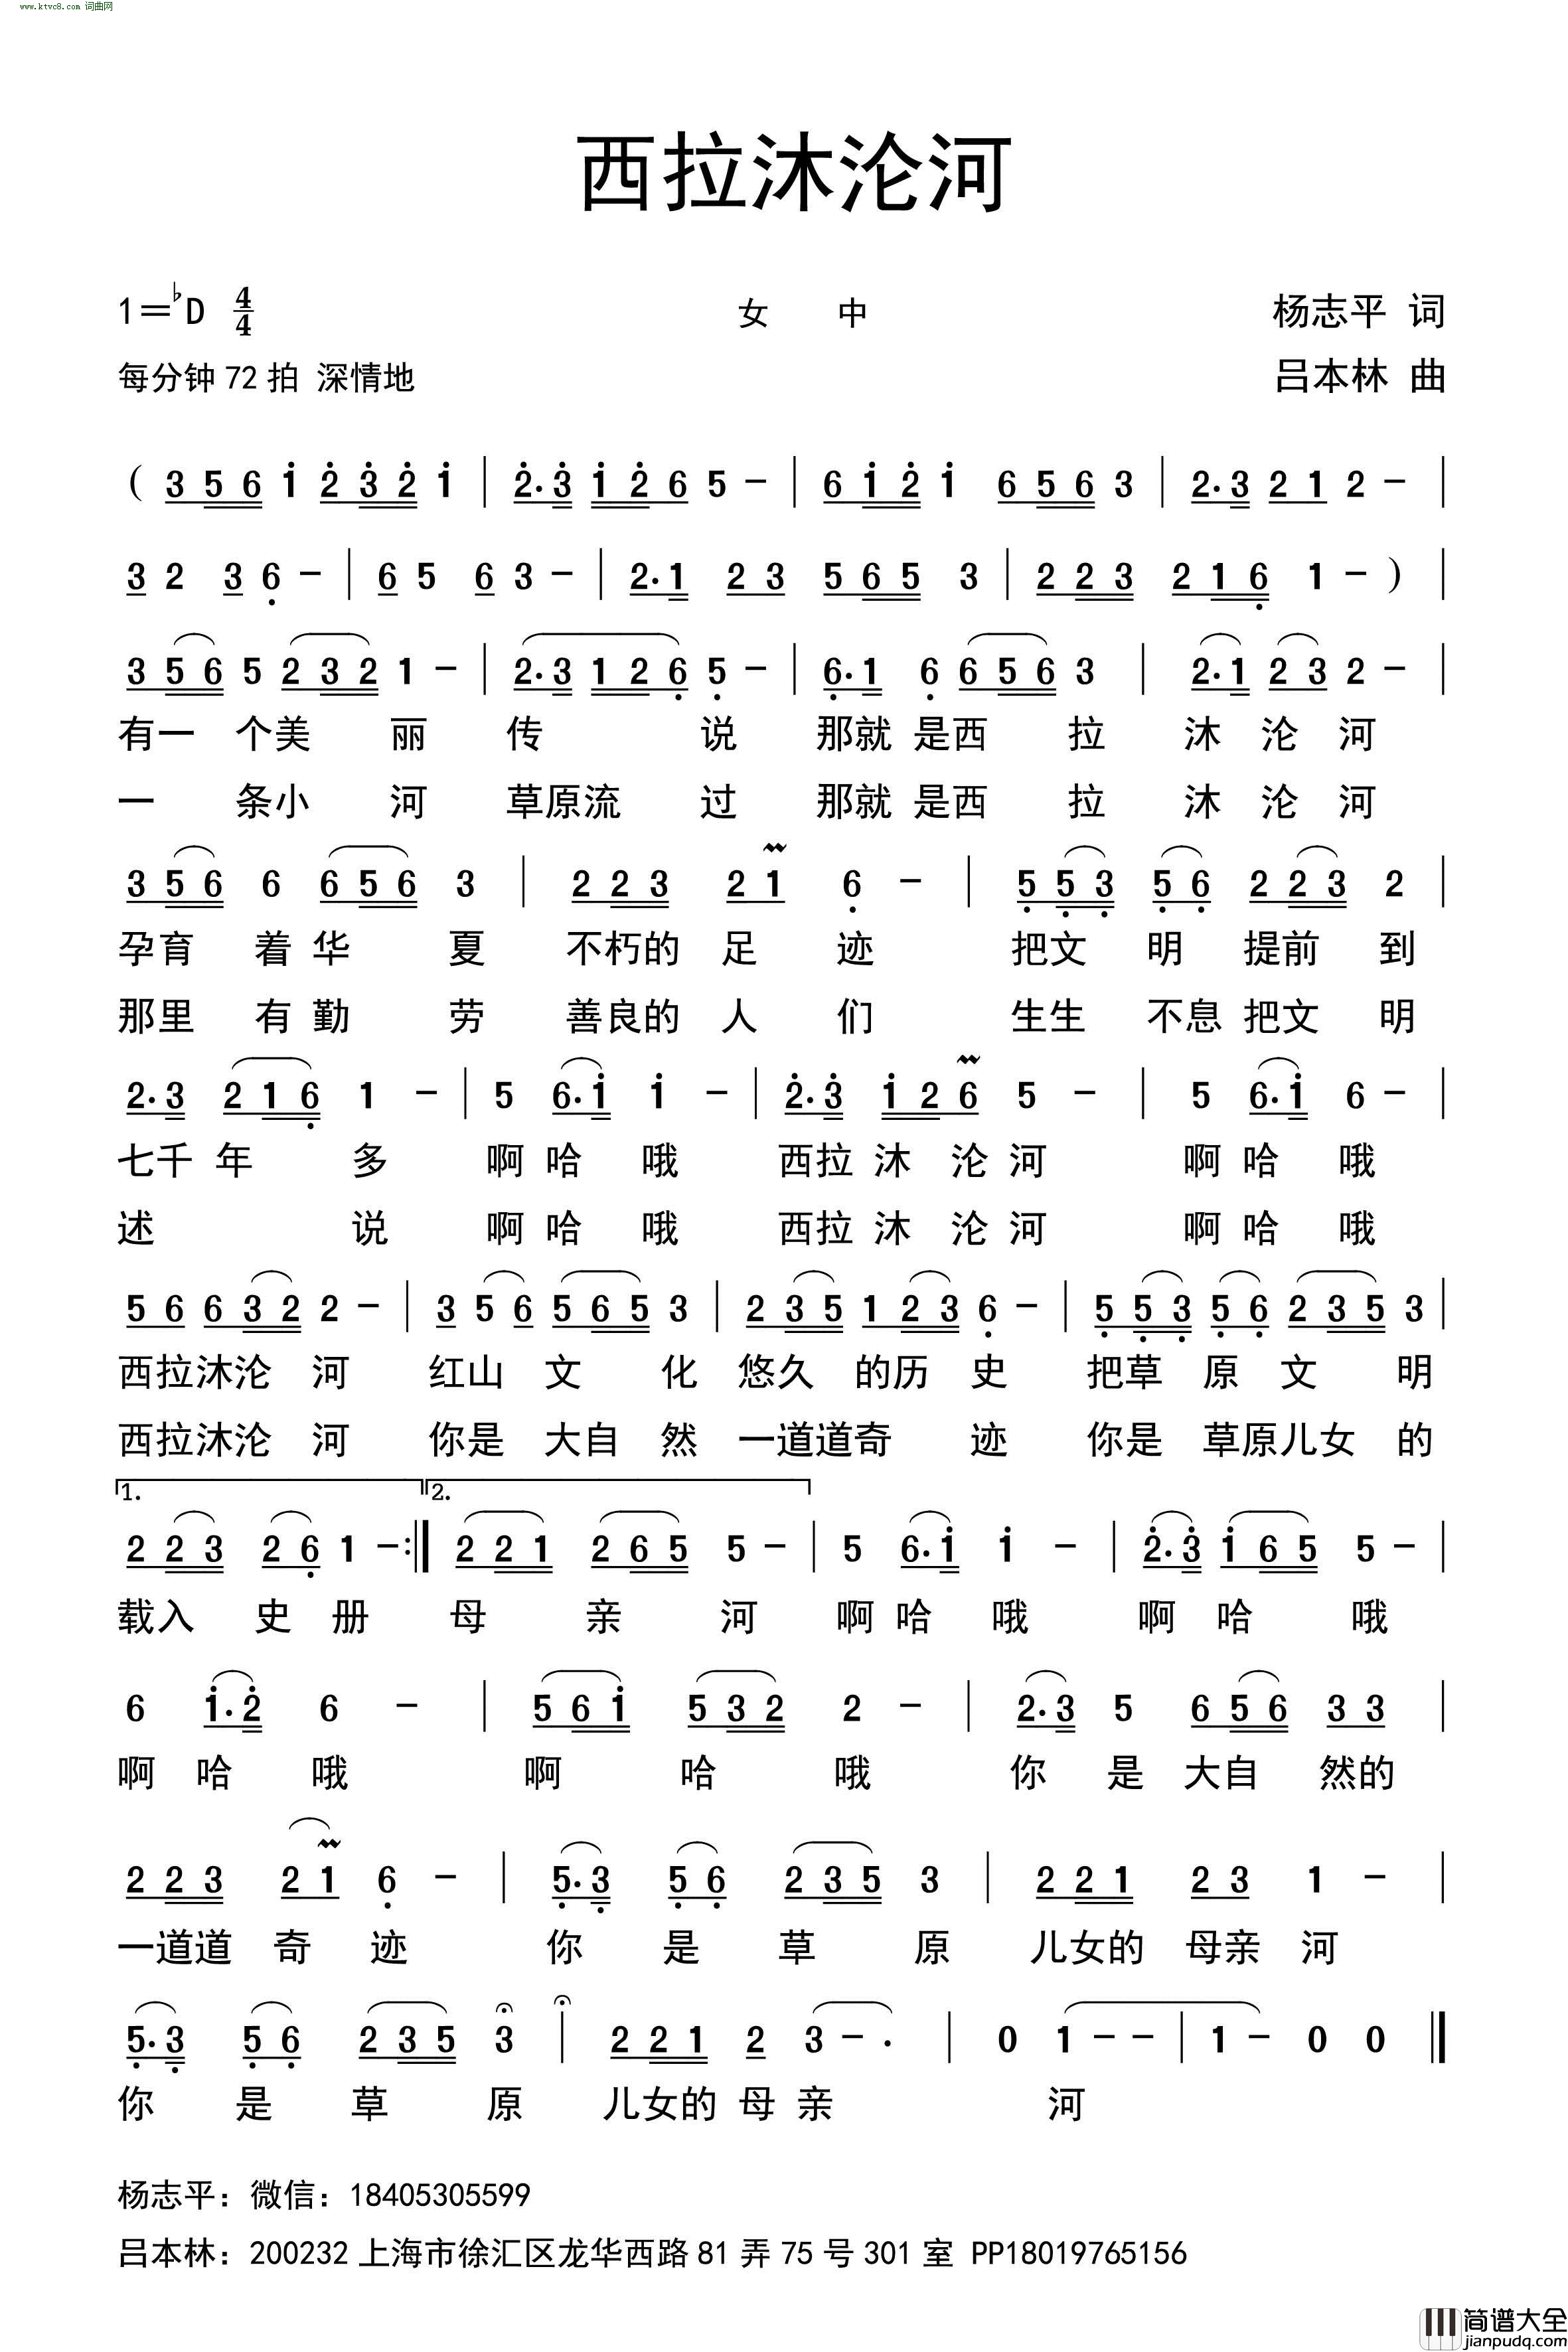 www.ktvc8.com 词曲网
西拉沐沦河
1=♭D 4/4 女 中 杨志平 词
每分钟72拍 深情地 吕本林 曲
( 3 5 6 1̇ 2̇ 3̇ 2̇ 1̇ | 2̇. 3̇ 1̇ 2̇ 6 5 - | 6 1̇ 2̇ 1̇ 6 5 6 3 | 2. 3 2 1 2 - |
3 2 3 6̣ - | 6 5 6 3 - | 2. 1 2 3 5 6 5 3 | 2 2 3 2 1 6̣ 1 - ) |
3 5 6 5 2 3 2 1 - | 2. 3 1 2 6̣ 5̣ - | 6̣. 1 6̣ 6 5 6 3 | 2. 1 2 3 2 - |
有一 个美 丽 传 说 那就 是西 拉 沐 沦 河
一 条小 河 草原流 过 那就 是西 拉 沐 沦 河
3 5 6 6 6 5 6 3 | 2 2 3 2 1 6̣ - | 5̣ 5̣ 3̣ 5̣ 6̣ 2 2 3 2 |
孕育 着 华 夏 不朽的 足 迹 把文 明 提前 到
那里 有 勤 劳 善良的 人 们 生生 不息 把文 明
2. 3 2 1 6̣ 1 - | 5 6. 1̇ 1̇ - | 2̇. 3̇ 1̇ 2 6 5 - | 5 6. 1̇ 6 - |
七千 年 多 啊 哈 哦 西拉 沐 沦 河 啊 哈 哦
述 说 啊 哈 哦 西拉 沐 沦 河 啊 哈 哦
5 6 6 3 2 2 - | 3 5 6 5 6 5 3 | 2 3 5 1 2 3 6̣ - | 5̣ 5̣ 3̣ 5̣ 6̣ 2 3 5 3 |
西拉沐沦 河 红山 文 化 悠久 的历 史 把草 原 文 明
西拉沐沦 河 你是 大自 然 一道道奇 迹 你是 草原儿女 的
1. 2.
2 2 3 2 6̣ 1 - :| 2 2 1 2 6 5 5 - | 5 6. 1̇ 1̇ - | 2̇. 3̇ 1̇ 6 5 5 - |
载入 史 册 母 亲 河 啊 哈 哦 啊 哈 哦
6 1̇. 2̇ 6 - | 5 6 1̇ 5 3 2 2 - | 2. 3 5 6 5 6 3 3 |
啊 哈 哦 啊 哈 哦 你 是 大自 然的
2 2 3 2 1 6̣ - | 5̣. 3̣ 5̣ 6̣ 2 3 5 3 | 2 2 1 2 3 1 - |
一道道 奇 迹 你 是 草 原 儿女的 母亲 河
5̣. 3̣ 5̣ 6̣ 2 3 5 3 | 2 2 1 2 3 - . | 0 1 - - | 1 - 0 0 ‖
你 是 草 原 儿女的 母 亲 河
杨志平：微信：18405305599
吕本林：200232上海市徐汇区龙华西路81弄75号301室 PP18019765156
简谱大全
jianpudq.com